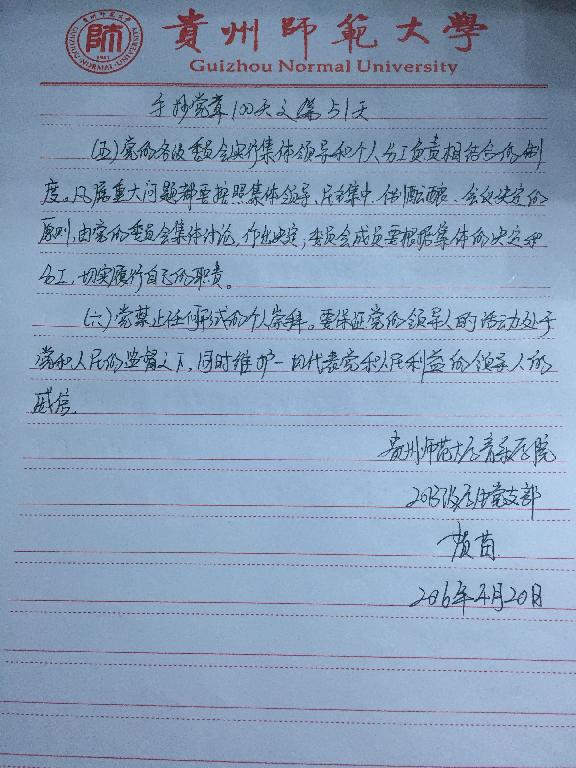 貴州師範大學
Guizhou Normal University
手抄党章100天之第51天
(五)党的各级委员会实行集体领导和个人分工负责相结合的制
度。凡属重大问题都要按照集体领导、民主集中、个别酝酿、会议决定的
原则,由党的委员会集体讨论,作出决定;委员会成员要根据集体的决定和
分工,切实履行自己的职责。
(六)党禁止任何形式的个人崇拜。要保证党的领导人的活动处于
党和人民的监督之下,同时维护一切代表党和人民利益的领导人的
威信。
贵州师范大学音乐学院
2013级学生党支部
苗
2016年4月20日